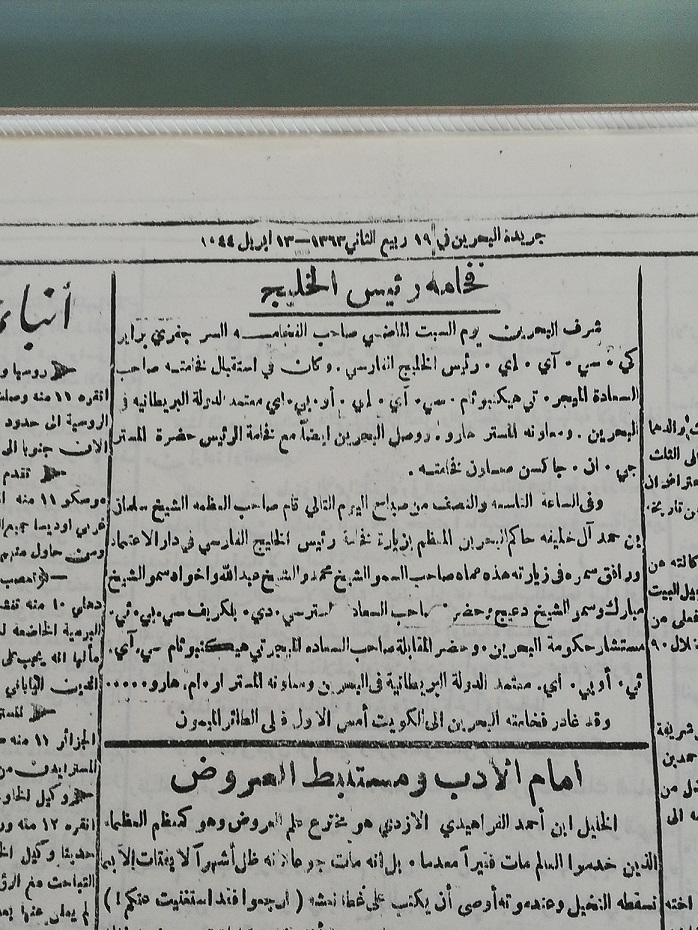 جريدة البحرين في ١٩ ربيع الثاني ١٣٦٣ — ١٣ ابريل ١٩٤٤
فخامة رئيس الخليج
شرف البحرين يوم السبت الماضي صاحب الفخامة السر جفري برابر
كي . سي . آي . اي . رئيس الخليج الفارسي . وكان في استقبال فخامته صاحب
السعادة الميجر . تي هيكنبوثام . سي . آي . اي . أو . بي . اي معتمد الدولة البريطانيه في
البحرين . ومعاونه المستر هارو . ووصل البحرين ايضاً مع فخامة الرئيس حضرة المستر
جي . ان . جاكسن معاون فخامته .
وفي الساعة التاسعه والنصف من صباح اليوم التالي قام صاحب العظمه الشيخ سلمان
بن حمد آل خليفه حاكم البحرين المعظم بزيارة فخامة رئيس الخليج الفارسي في دار الاعتماد
ورافق سموه في زيارته هذه صاحب السمو الشيخ محمد والشيخ عبدالله واخواه سمو الشيخ
مبارك وسمو الشيخ دعيج وحضر صاحب السعادة المستر سي . دي . بلكريف سي . بي . ئي .
مستشار حكومة البحرين . وحضر المقابلة صاحب السعاده الميجر تي هيكنبوثام سي . آي .
ئي . أو بي . اي . معتمد الدولة البريطانية في البحرين ومعاونه المستر او . ام . هارو . . . . .
وقد غادر فخامته البحرين الى الكويت أمس الاول على الطائر الميمون
امام الأدب ومستنبط العروض
الخليل ابن أحمد الفراهيدي الازدي هو مخترع علم العروض وهو كمعظم العظماء
الذين خدموا العالم مات فقيراً معدما . بل انه مات جوعا لانه ظل أشهراً لا يقتات إلا بما
تسقطه النخيل وعند موته أوصى أن يكتب على غطاء نعشه ( ارجعوا فقد استغنيت عنكم ! )
أنباء
روسيا و
انقره ١١ منه وصلت
الروسية الى حدود
الان جنوبا الى
تقدم
موسكو ١١ منه
غربي اوديسا
ومن حاول
دهلي ١٠ منه
البرمية الخاضعه
الجزائر ١١ منه
وكيل
انقره ١٢ منه
حديثا وكيل
والدها
الى الثلث
من تاريخه
وكالته عن
البيت
شريفة
حمدين